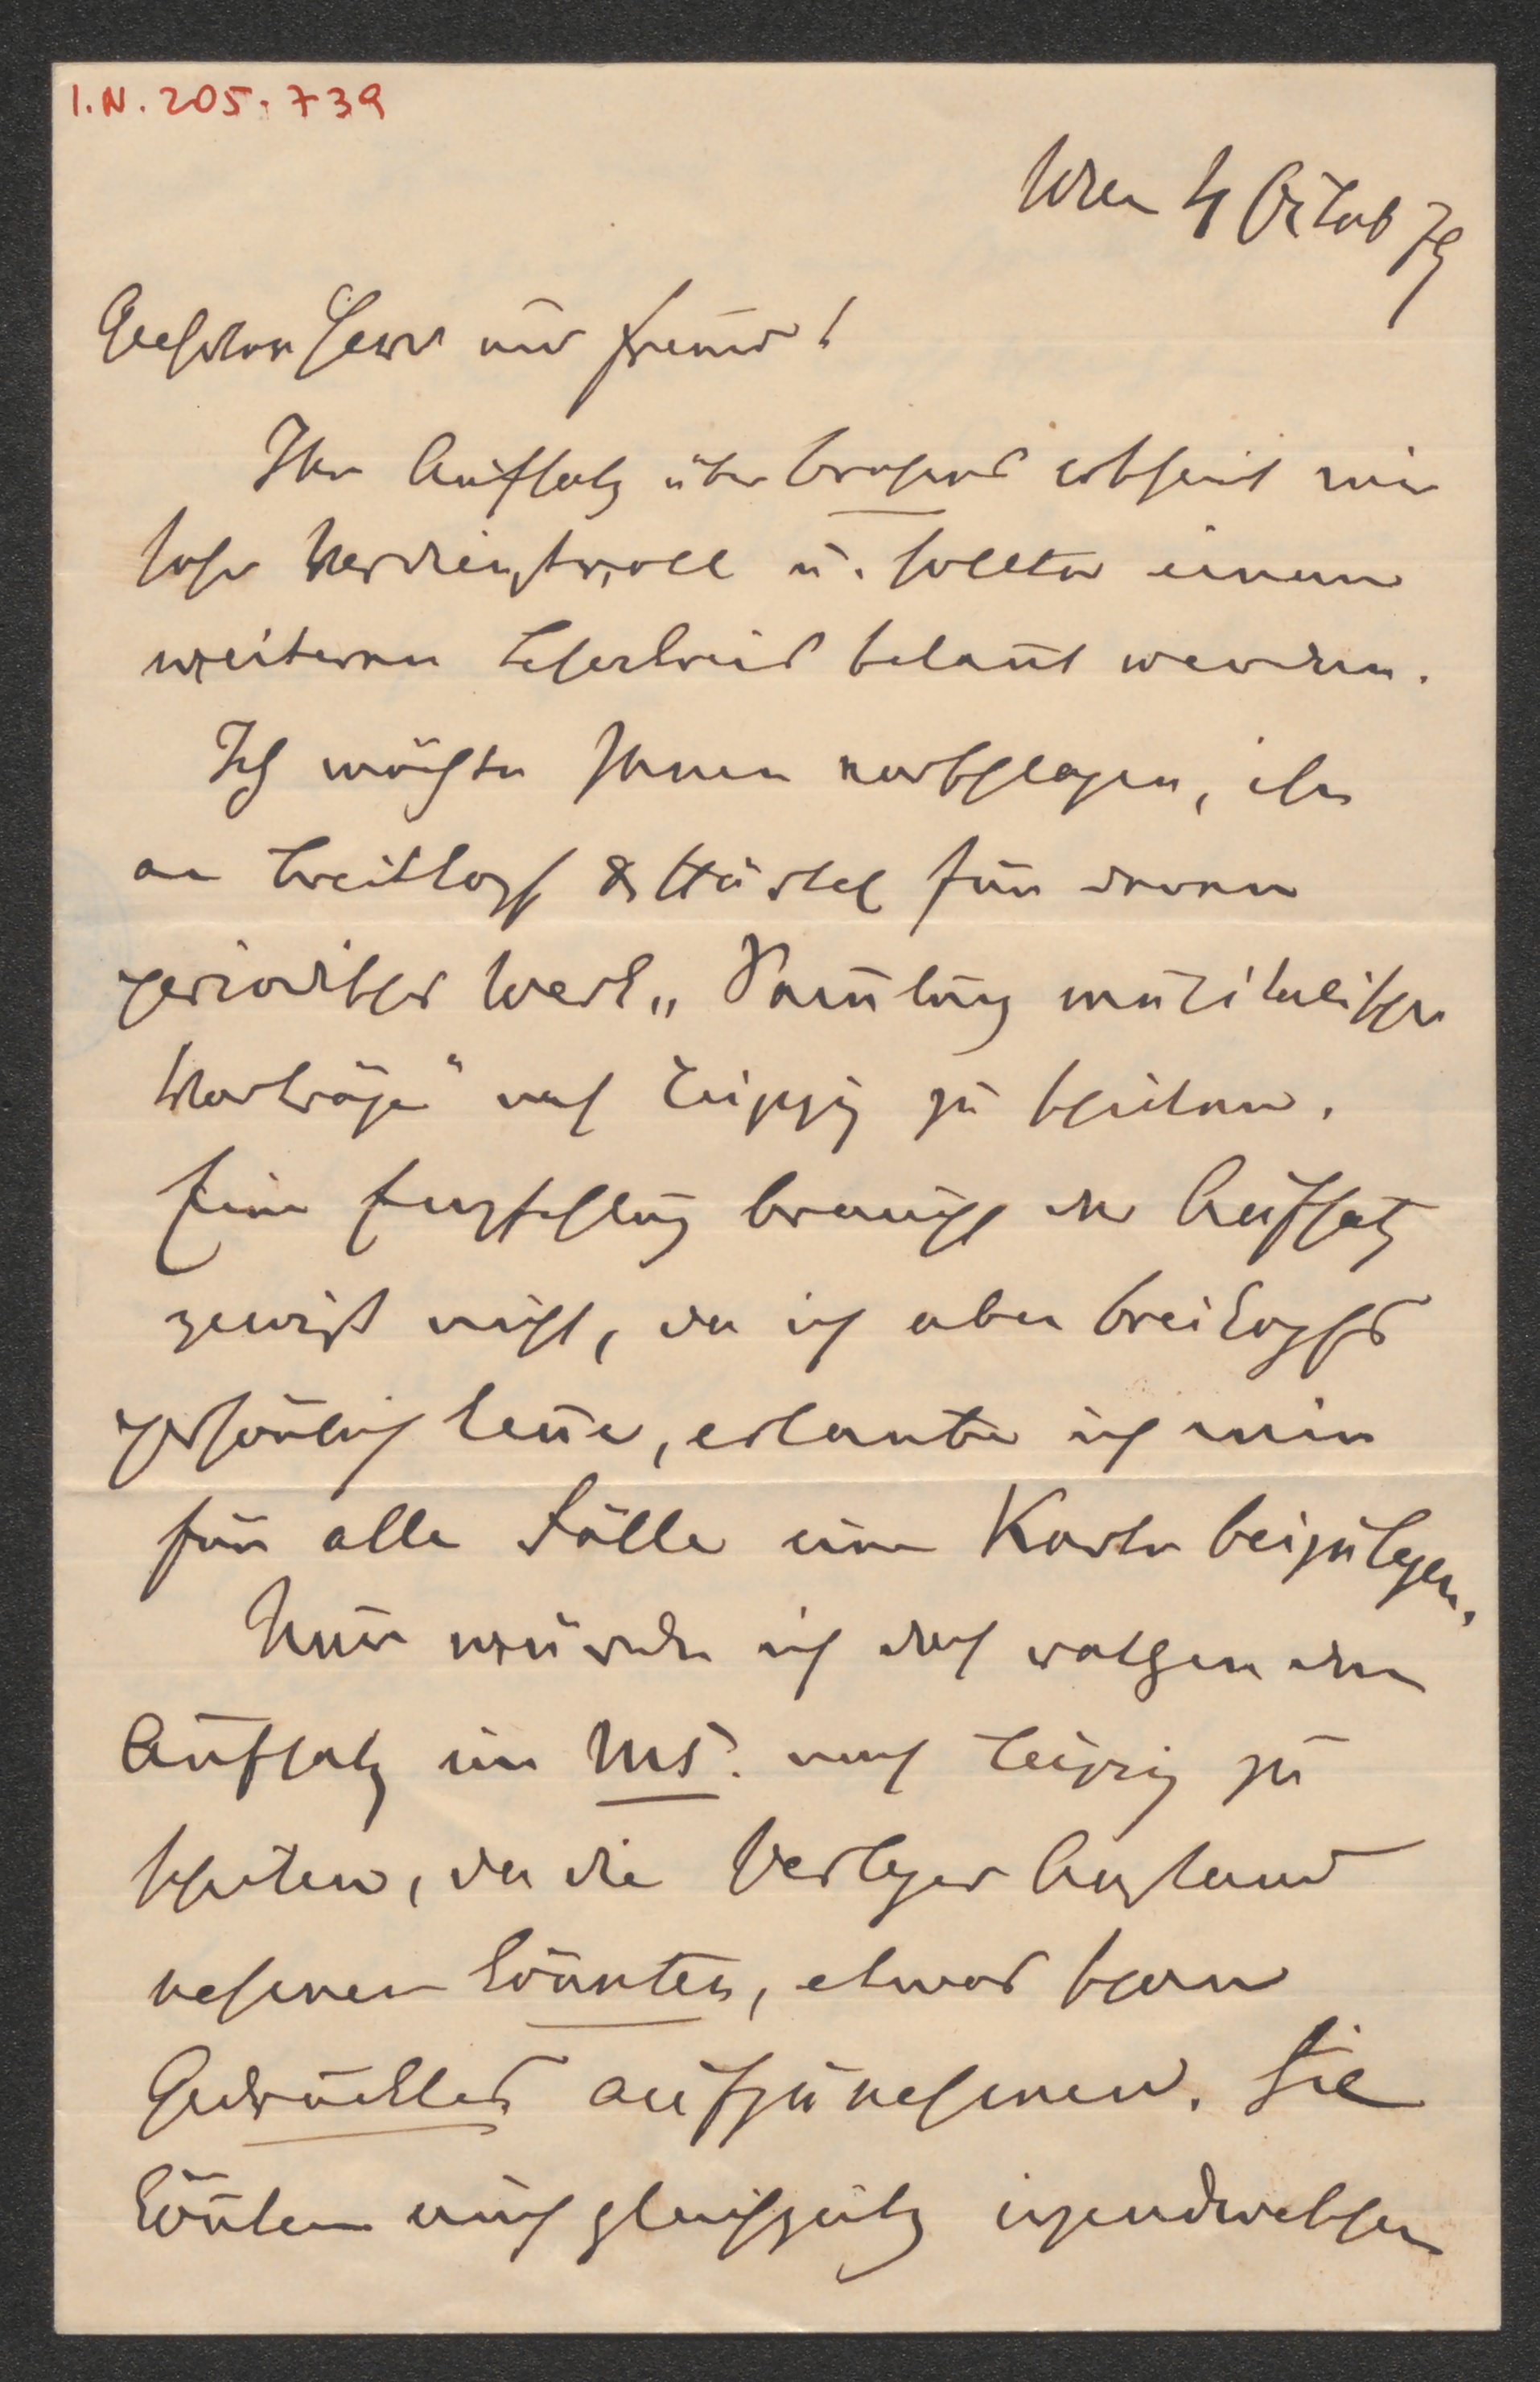 I.N. 205.739
Wien 4 Octob 79
Geehrter Herr und Freund!
Ihr Aufsatz über Brahms erscheint mir
sehr verdienstvoll u. sollte einem
weiteren Leserkreis bekannt werden.
Ich möchte Ihnen vorschlagen, ihn
an Breitkopf & Härtel für deren
periodisches Werk „Sam̄lung musikalischer
Vorträge“ nach Leipzig zu schicken.
Eine Empfehlung braucht der Aufsatz
gewiß nicht, da ich aber Breitkopfs
persönlich kenne, erlaube ich mir
für alle Fälle eine Karte beizulegen.
Nur würde ich doch rathen den
Aufsatz im MS. nach Leipzig zu
schicken, da die Verleger Anstand
nehmen könnten, etwas schon
Gedrucktes aufzunehmen. Sie
könnten auch gleichzeitig irgendwelchen